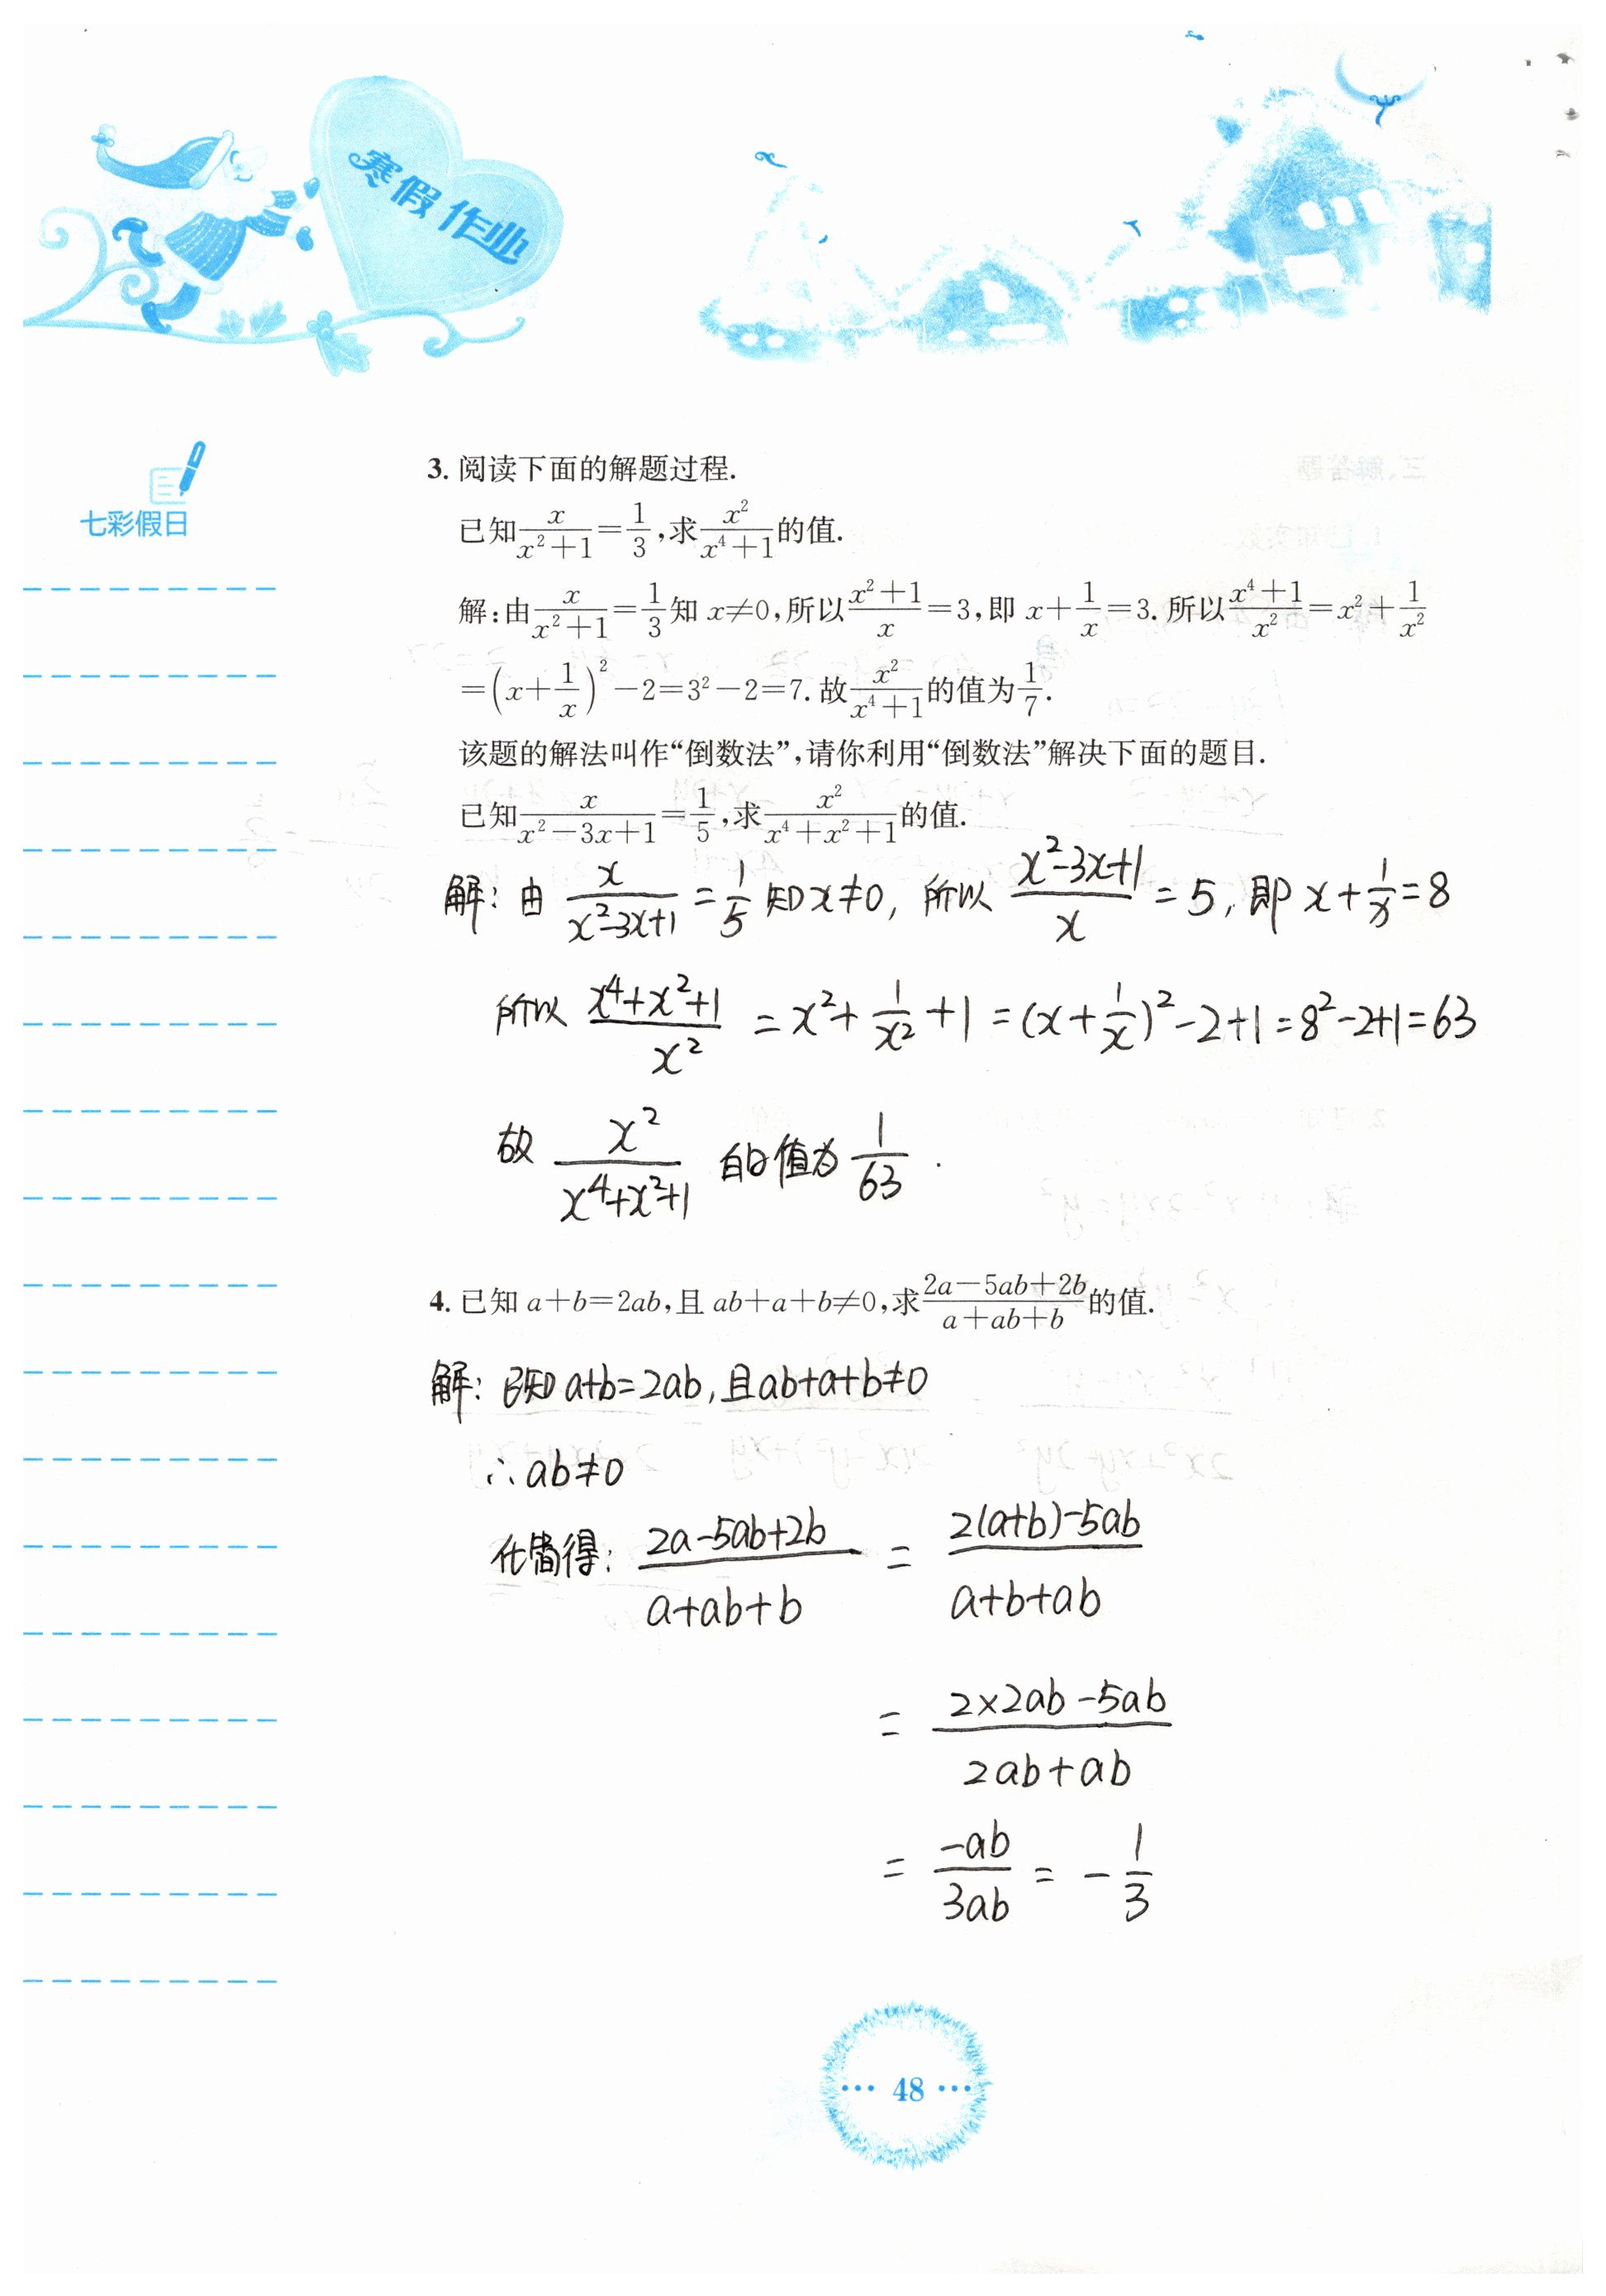 寒假作业
七彩假日
3. 阅读下面的解题过程.
已知x/(x²+1)=1/3,求x²/(x⁴+1)的值.
解:由x/(x²+1)=1/3知 x≠0,所以(x²+1)/x=3,即 x+1/x=3. 所以(x⁴+1)/x²=x²+1/x²
=(x+1/x)²-2=3²-2=7. 故x²/(x⁴+1)的值为1/7.
该题的解法叫作“倒数法”,请你利用“倒数法”解决下面的题目.
已知x/(x²-3x+1)=1/5,求x²/(x⁴+x²+1)的值.
解: 由 x/(x²-3x+1) = 1/5 知x≠0, 所以 (x²-3x+1)/x = 5, 即 x+1/x=8
所以 (x⁴+x²+1)/x² = x²+1/x²+1 = (x+1/x)²-2+1=8²-2+1=63
故 x²/(x⁴+x²+1) 的值为 1/63 .
4. 已知 a+b=2ab,且 ab+a+b≠0,求(2a-5ab+2b)/(a+ab+b)的值.
解: 已知 a+b=2ab, 且ab+a+b≠0
∴ab≠0
化简得: (2a-5ab+2b)/(a+ab+b) = (2(a+b)-5ab)/(a+b+ab)
= (2×2ab-5ab)/(2ab+ab)
= -ab/3ab = -1/3
··· 48 ···